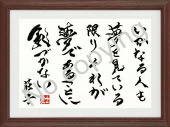 いかなる人も
夢を見ている
限りそれが
夢であることに
氣づかな
荘子
No copying